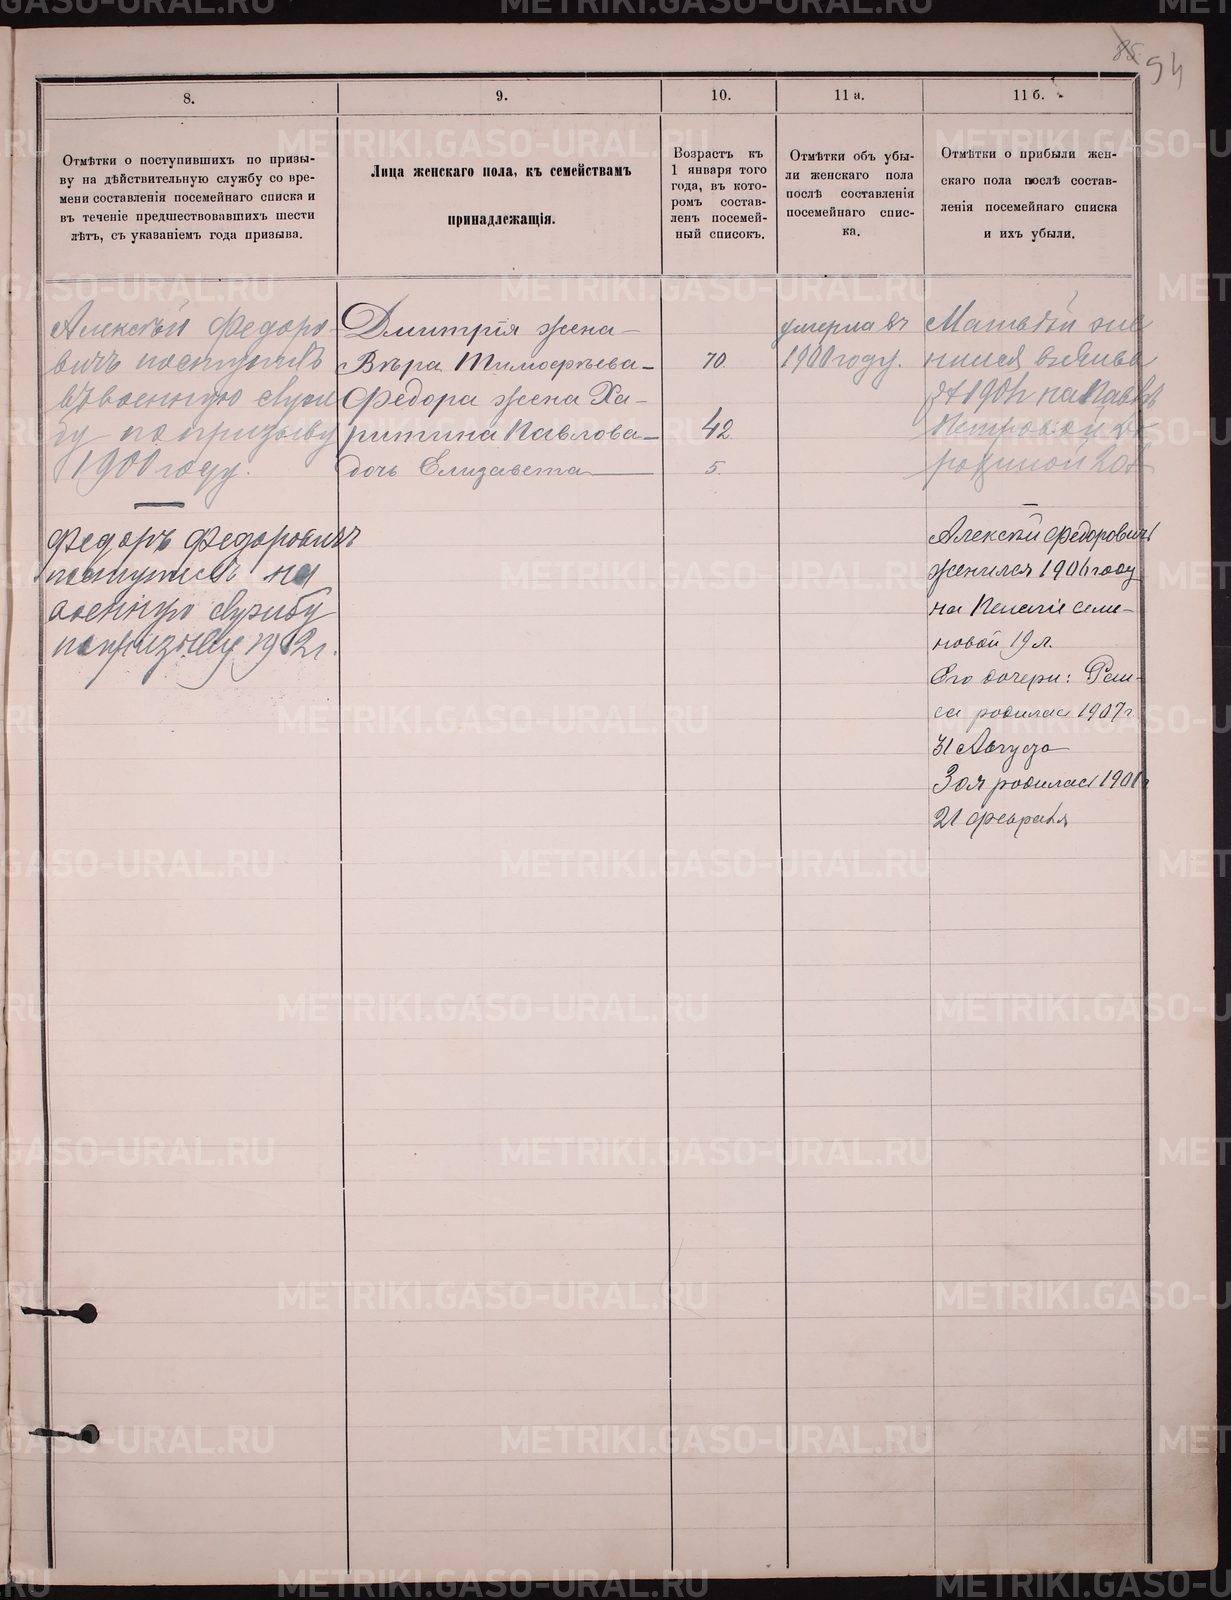 85 94
8.
9.
10.
11 а.
11 б.
Отмѣтки о поступившихъ по призы-
ву на дѣйствительную службу со вре-
мени составленія посемейнаго списка и
въ теченіе предшествовавшихъ шести
лѣтъ, съ указаніемъ года призыва.
Лица женскаго пола, къ семействамъ
принадлежащія.
Возрастъ къ
1 января того
года, въ кото-
ромъ состав-
ленъ посемей-
ный списокъ.
Отмѣтки объ убы-
ли женскаго пола
послѣ составленія
посемейнаго спис-
ка.
Отмѣтки о прибыли жен-
скаго пола послѣ состав-
ленія посемейнаго списка
и ихъ убыли.
Алексѣй Федоро-
вичъ поступилъ
въ военную служ
бу по призыву
1900 году.
Федоръ Федоровичъ
поступилъ на
военную службу
по призыву 1912 г.
Дмитрія жена
Вѣра Тимофѣева
Федора жена Ха-
ритина Павлова
дочь Елизавета
70
42
5.
умерла въ
1900 году.
Матвѣй же
нился
1904 на
Петровой
20 л
Алексѣй Федоровичъ
женился 1906 году
на Пелагіи Семе-
новой 19 л.
Его дочери: Раи-
са родилась 1907 г
31 Августа
Зоя родилась
21 февраля
METRIKI.GASO-URAL.RU